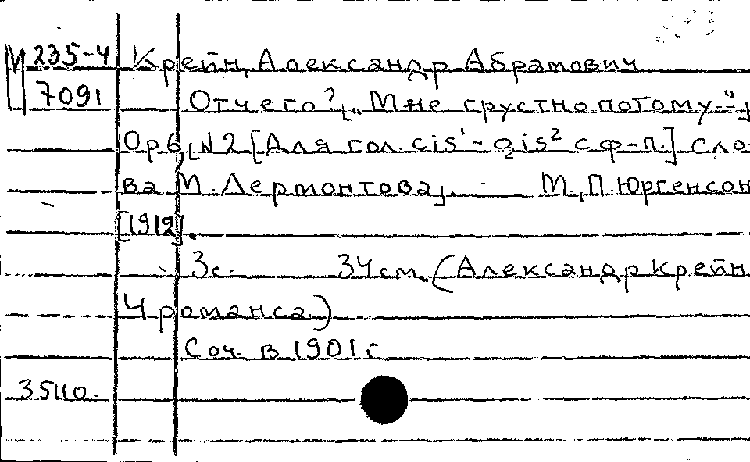 М 235-4 Крейн, Александр Абрамович
7091 Отчего? „Мне грустно потому..."
Op 6, N2 [Для гол. cis¹-gis² с ф-п.] Сло-
ва М. Лермонтова, М., П. Юргенсон
[1912].
3с. 34см. (Александр Крейн
4 романса)
Соч. в 1901 г
35110.